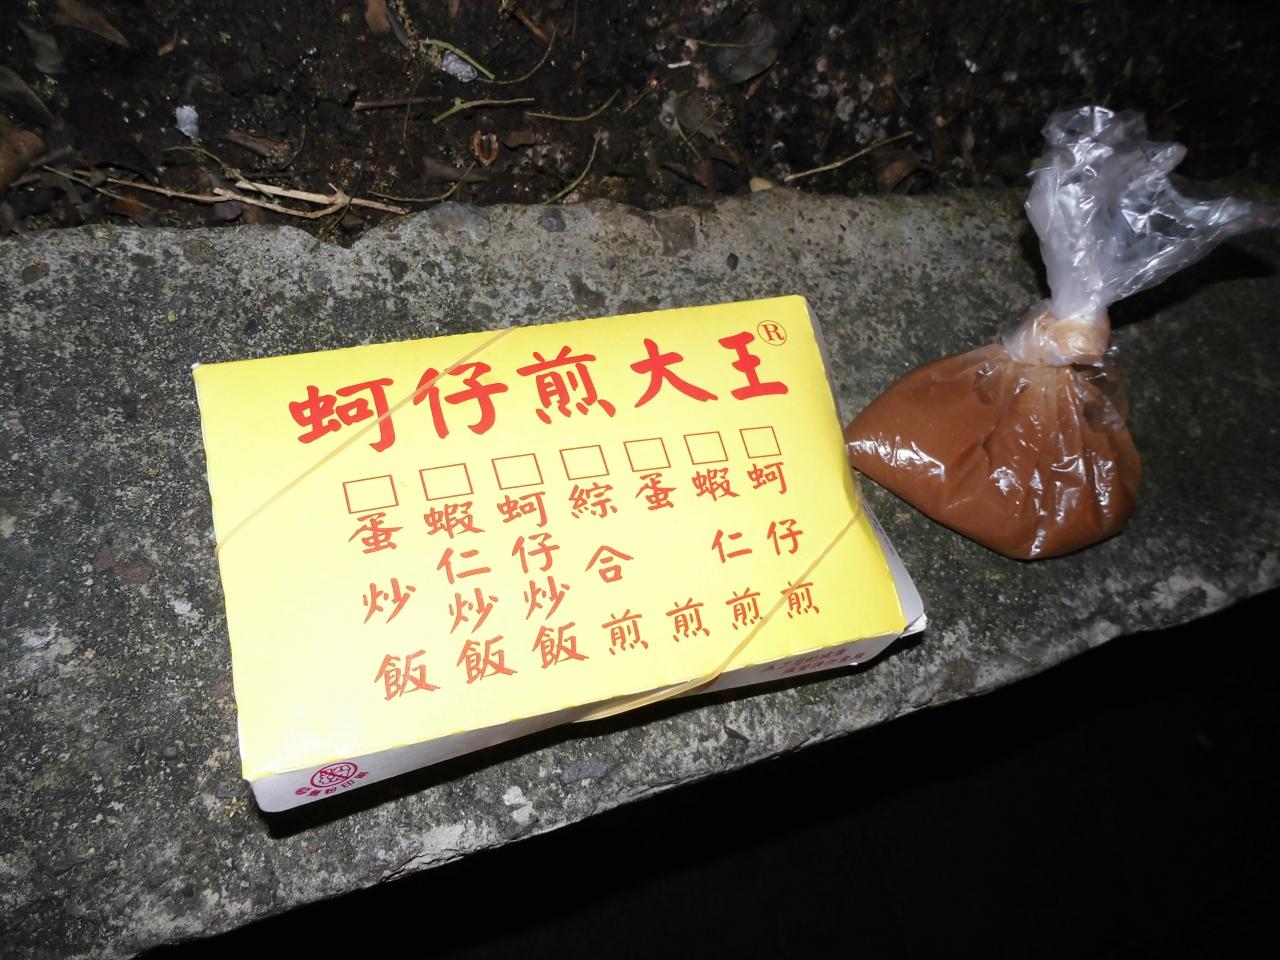 蚵仔煎大王®
蚵仔煎
蝦仁煎
蛋煎
綜合煎
蚵仔炒飯
蝦仁炒飯
蛋炒飯